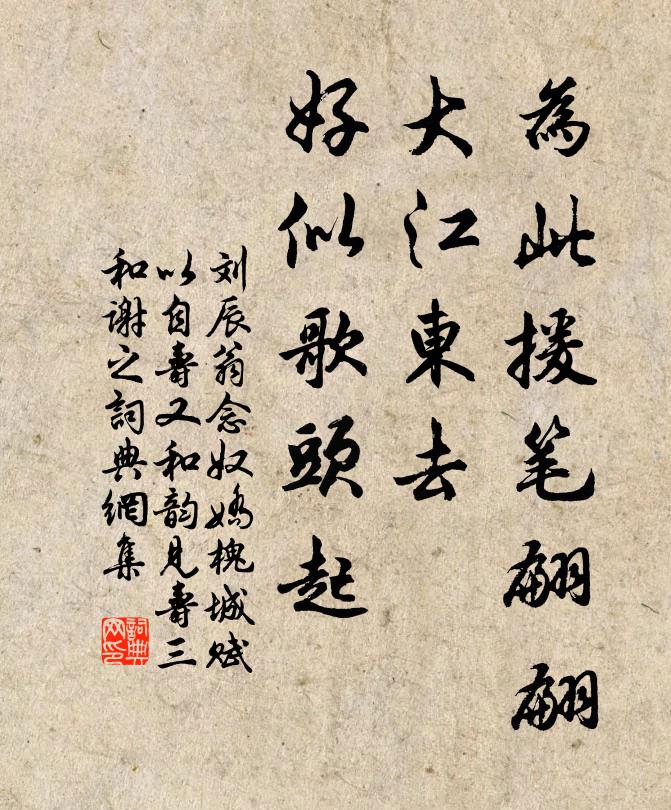 為此援笔翩翩
大江東去
好似歌頭起
刘辰翁念奴嬌槐城赋
以自壽又和韵見壽三
和谢之詞典網集
詞典网印